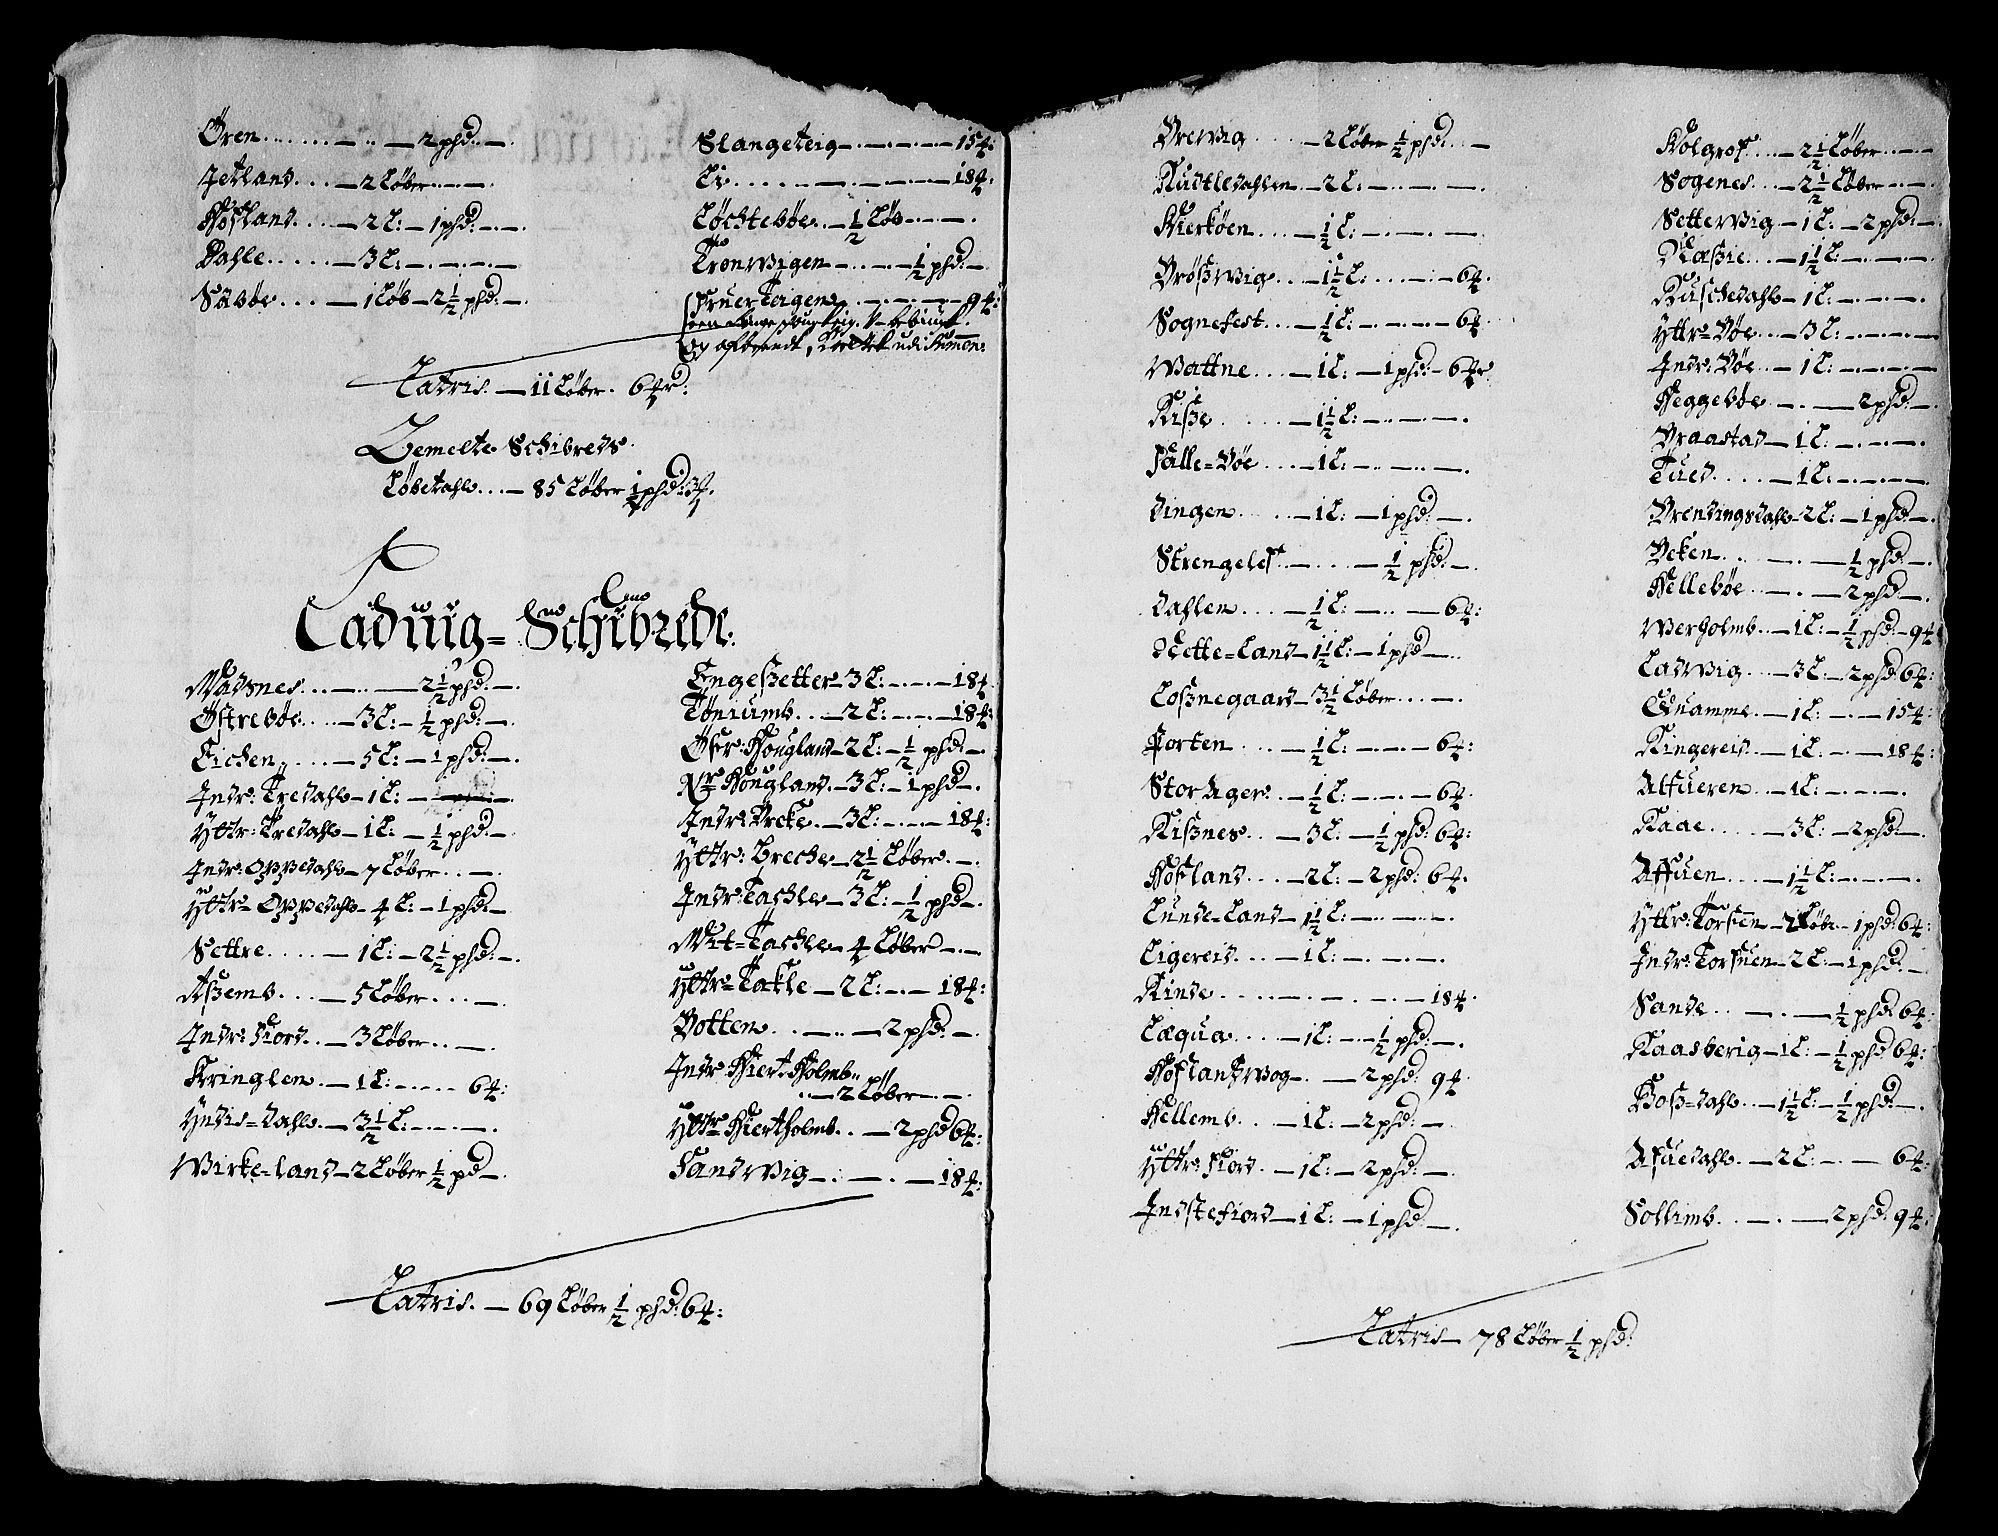 Øren - 2 phd: -
Jetland - 2 Løber -
Høfland - 2 L: - 1 phd: -
Dahle - 3 L: -
Säbøe - 1 Løb - 2½ phd: -
Slangeteig - 15 ₰:
Li - 18 ₰:
Løchtebøe - ½ Løb -
Trønwigen - ½ phd: -
Fruer Teigen - 9 ₰:
Latris - 11 Løber 6 ₰r:
Zemelte Schibreds
Løbetahl - 85 Løber ½ phd: 3 ₰.
Ladwig = Schibrede.
Wadsnes - 2½ phd: -
Østrebøe - 3 L: - ½ phd: -
Eichen - 5 L: - 1 phd: -
Indr: Tredahl - 1 L: -
Yttr: Tredahl - 1 L: - ½ phd: -
Indr: Oppedahl - 7 Løber -
Yttr= Oppedahl - 4 L: - 1 phd: -
Settre - 1 L: - 2½ phd: -
Aszemb - 5 Løber -
Indr: Fiord - 3 Løber -
Kringlen - 1 L: - 6 ₰:
Yndis=Dahl - 3½ L: -
Wirke-land - 2 Løber ½ pd -
Engeszetter - 3 L: - 18 ₰.
Tøniumb - 2 L: - 18 ₰:
Øfr: Hougland - 2 L: - ½ phd: -
Nr: Hougland - 3 L: - 1 phd -
Indr: Brcke - 3 L: - 18 ₰:
Yttr: Breche - 2½ Løber -
Indr: Tachle - 3 L: - ½ phd -
Mit=Tachle - 4 Løber -
Yttr= Takle - 2 L: - 18 ₰:
Botten - 2 phd: -
Indr Hiertholmb
- 2 Løber -
Yttr Hiertholmb - 2 phd 6 ₰:
Sandwig - 18 ₰:
Latris - 69 Løber ½ phd: 6 ₰:
Brewig - 2 Løber ½ phd: -
Rutledahlen - 2 L: -
Hierkøen - ½ L: -
Brøszwig - 1½ L: - 6 ₰.
Sognefest - ½ L: - 6 ₰.
Wattne - 1 L: - 1 phd: - 6 ₰r
Risze - 1½ L: -
Falle=Bøe - 1 L: -
Dingen - 1 L: - 1 phd: -
Strengelef - ½ phd: -
Dahlen - ½ L: - 6 ₰:
Nette=Land - 1½ L: - 1 phd -
Losznegaard - 3½ Løber -
Porten - ½ L: - 6 ₰:
Stor Ager - ½ L: - 6 ₰.
Risznes - 3 L: - ½ phd: 6 ₰:
Høfland - 2 L: - 2 phd: 6 ₰.
Lunde-Land - 1½ L: -
Ligereid - 1 L: -
Rinde - 18 ₰.
Læqua - 1 L: - ½ phd: -
Høflandzwog - 2 phd: 9 ₰.
Hellemb - 1 L: - 2 phd: -
Yttr: Fiord - 1 L: - 2 phd: -
Indstefiord - 1 L: - 1 phd: -
Kolgrof - 2½ Løber -
Sogenes - 2½ Løber -
Settewig - 1 L: - 2 phd: -
Næszie - 1½ L: -
Raschedahl - 1 L: -
Yttr= Bøe - 3 L: -
Indr: Bøe - 1 L: -
Heggebøe - 2 phd: -
Braastad - 1 L: -
Tued - 1 L: -
Brendingsdahl - 2 L: - 1 phd: -
Beken - ½ phd: -
Hellebøe - 2 phd: -
Werholmb - 1 L: - ½ phd: - 9 ₰
Ladwig - 3 L: - 2 phd 6 ₰:
Quamme - 1 L: - 15 ₰:
Ringereid - 1 L: - 18 ₰:
Alfueren - 1 L: -
Raae - 3 L: - 2 phd: -
Affuen - 1½ L: -
Yttr: Torsuen - 2 Løbr - 1 phd 6 ₰:
Indr: Torsuen - 2 L: - 1 phd: -
Sande - ½ phd 6 ₰:
Raasberig - 1 L: - ½ phd 6 ₰:
Bosz=dahl - 1½ L: - ½ phd: -
Afuedahl - 2 L: - 6 ₰:
Sollimb - 2 phd: 9 ₰:
Latris - 78 Løber ½ phd: